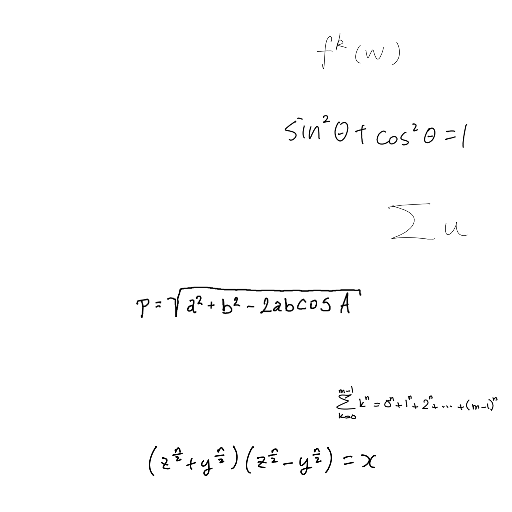 f^k (w)
sin²θ + cos²θ = 1
∑ u
P = √(a² + b² - 2abcos A)
∑_{k=0}^{m-1} k^n = 0^n + 1^n + 2^n + ... + (m-1)^n
(z^{n/2} + y^{n/2})(z^{n/2} - y^{n/2}) = x